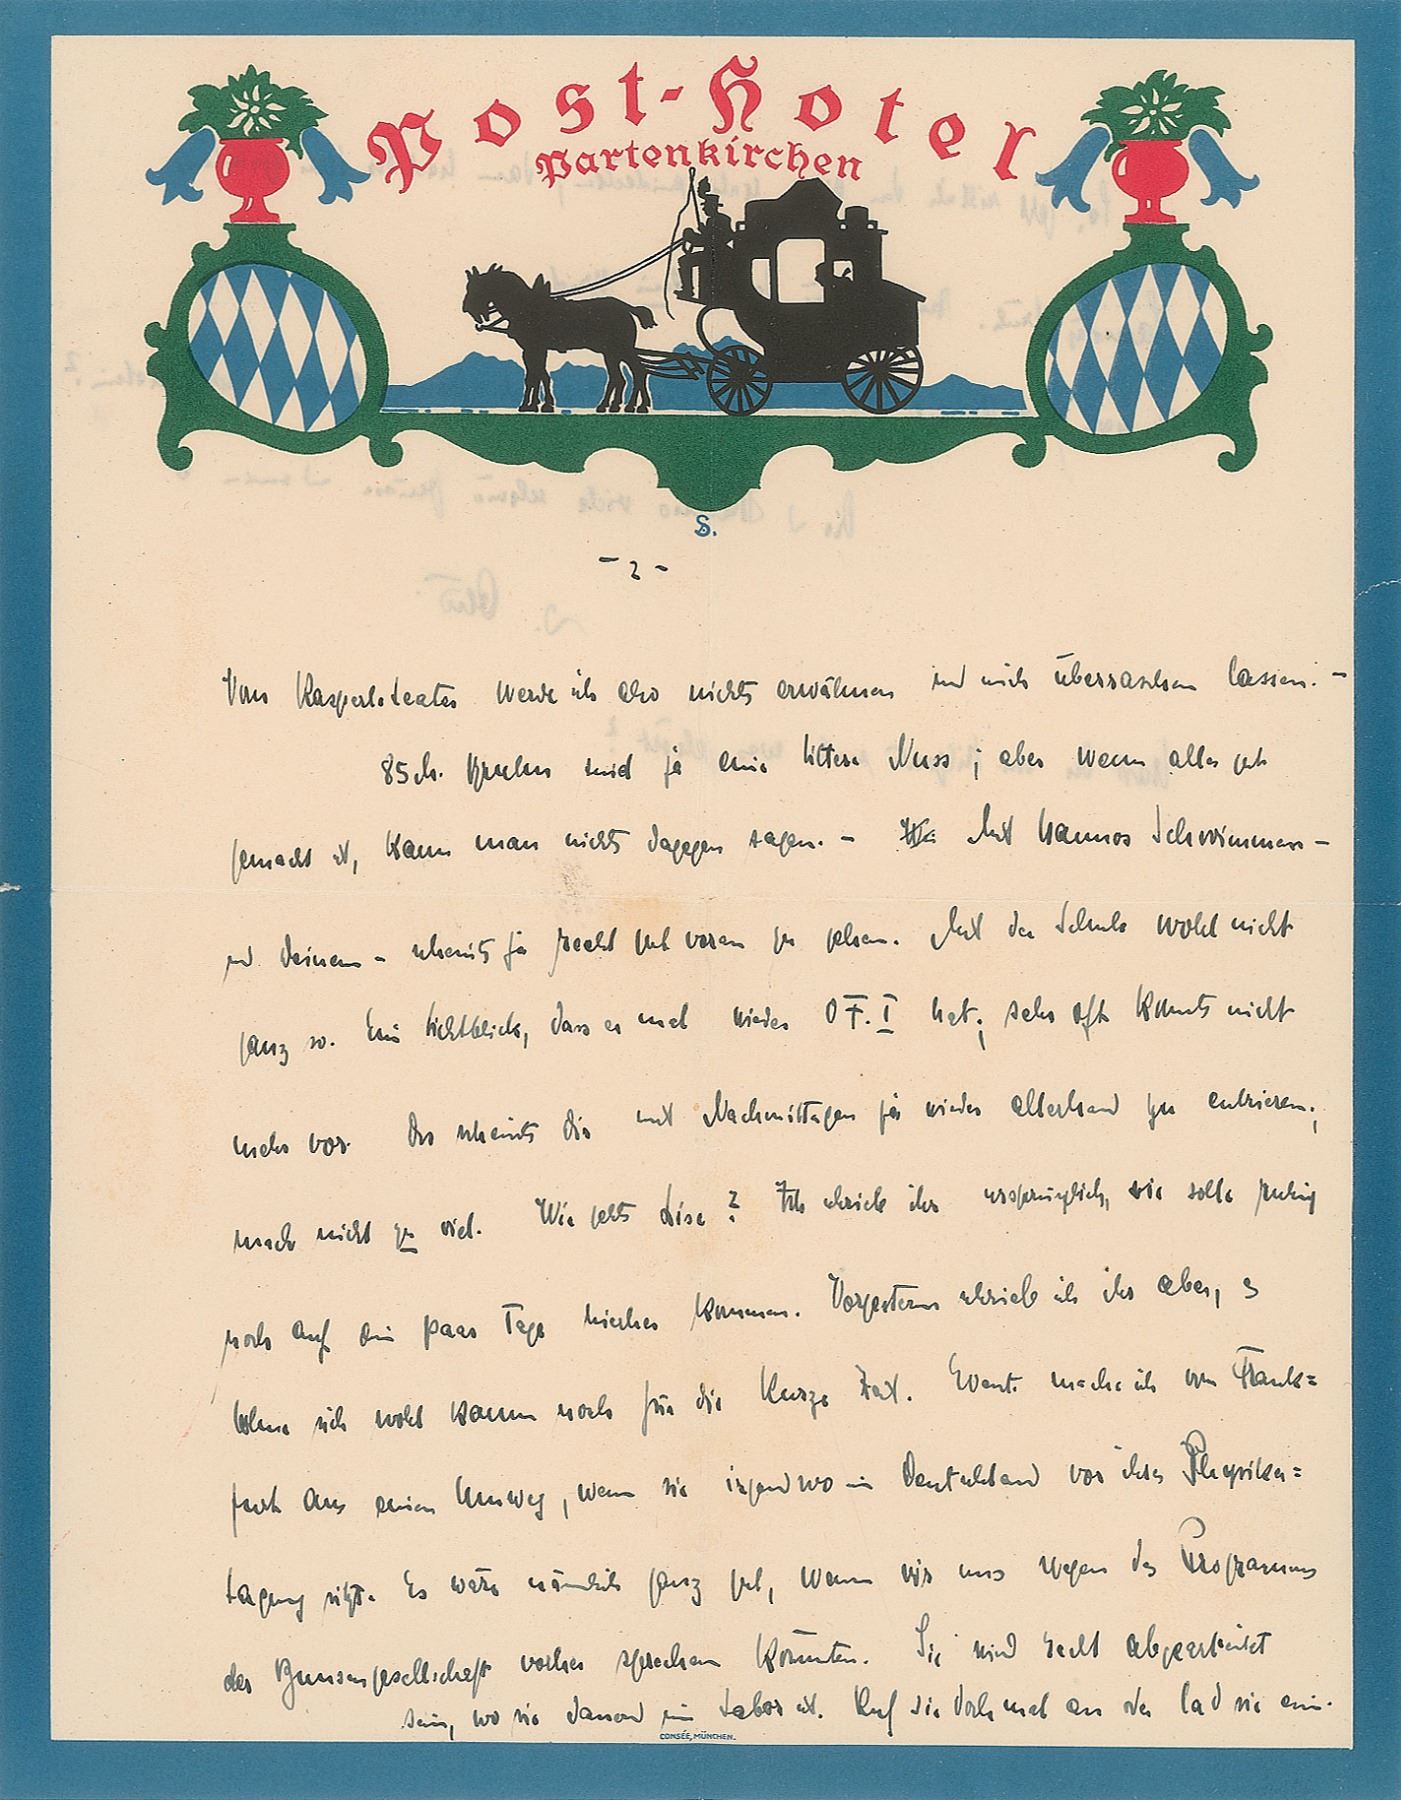 Post-Hotel
Partenkirchen
S.
- 2 -
Vom Kasperleteater werde ich also nichts erwähnen und mich überraschen lassen. -
85 ch. sind ja eine bittere Nuss; aber wenn alles gut
gemacht ist, kann man nichts dagegen sagen. - Mit Hannos Schwimmen -
und Deinem - scheints ja recht gut voran zu gehen. Mit der Schule wohl nicht
ganz so. Ein Lichtblick, dass er mal wieder O F. I hat; sehr oft kommts nicht
mehr vor. Du scheinst Dir mit Nachmittagen ja wieder allerhand zu
mach nicht zu viel. Wie gehts Lise? Ich schrieb ihr ursprünglich, sie solle ruhig
noch auf ein paar Tage hierher kommen. Vorgestern schrieb ich ihr aber, es
lohne sich wohl kaum noch für die kurze Zeit. Event. mache ich von Frank=
furt aus einen Umweg, wenn sie irgendwo in Deutschland vor ihrer Physiker=
tagung sitzt. Es wäre nämlich ganz gut, wenn wir uns wegen des Programms
der Bunsengesellschaft vorher sprechen könnten. Sie wird recht abgearbeitet
sein, wo sie dauernd im Labor ist. Ruf sie doch mal an oder lad sie ein.
CONSÉE, MÜNCHEN.